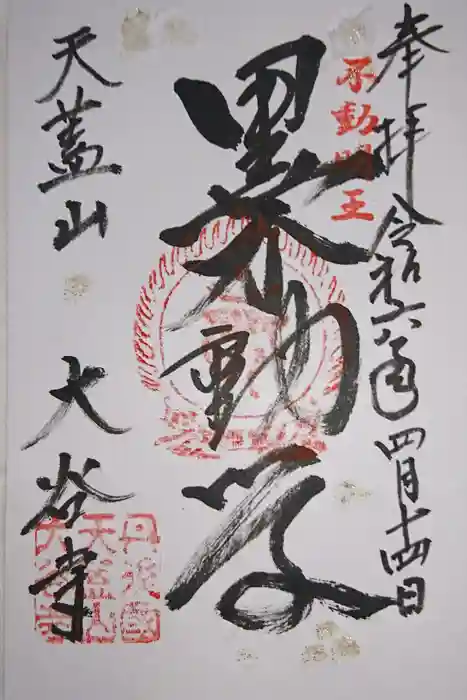 奉拝 令和六年 四月十四日
不動明王
黒不動尊
天蓋山 大谷寺
丹後國
天蓋山
大谷寺